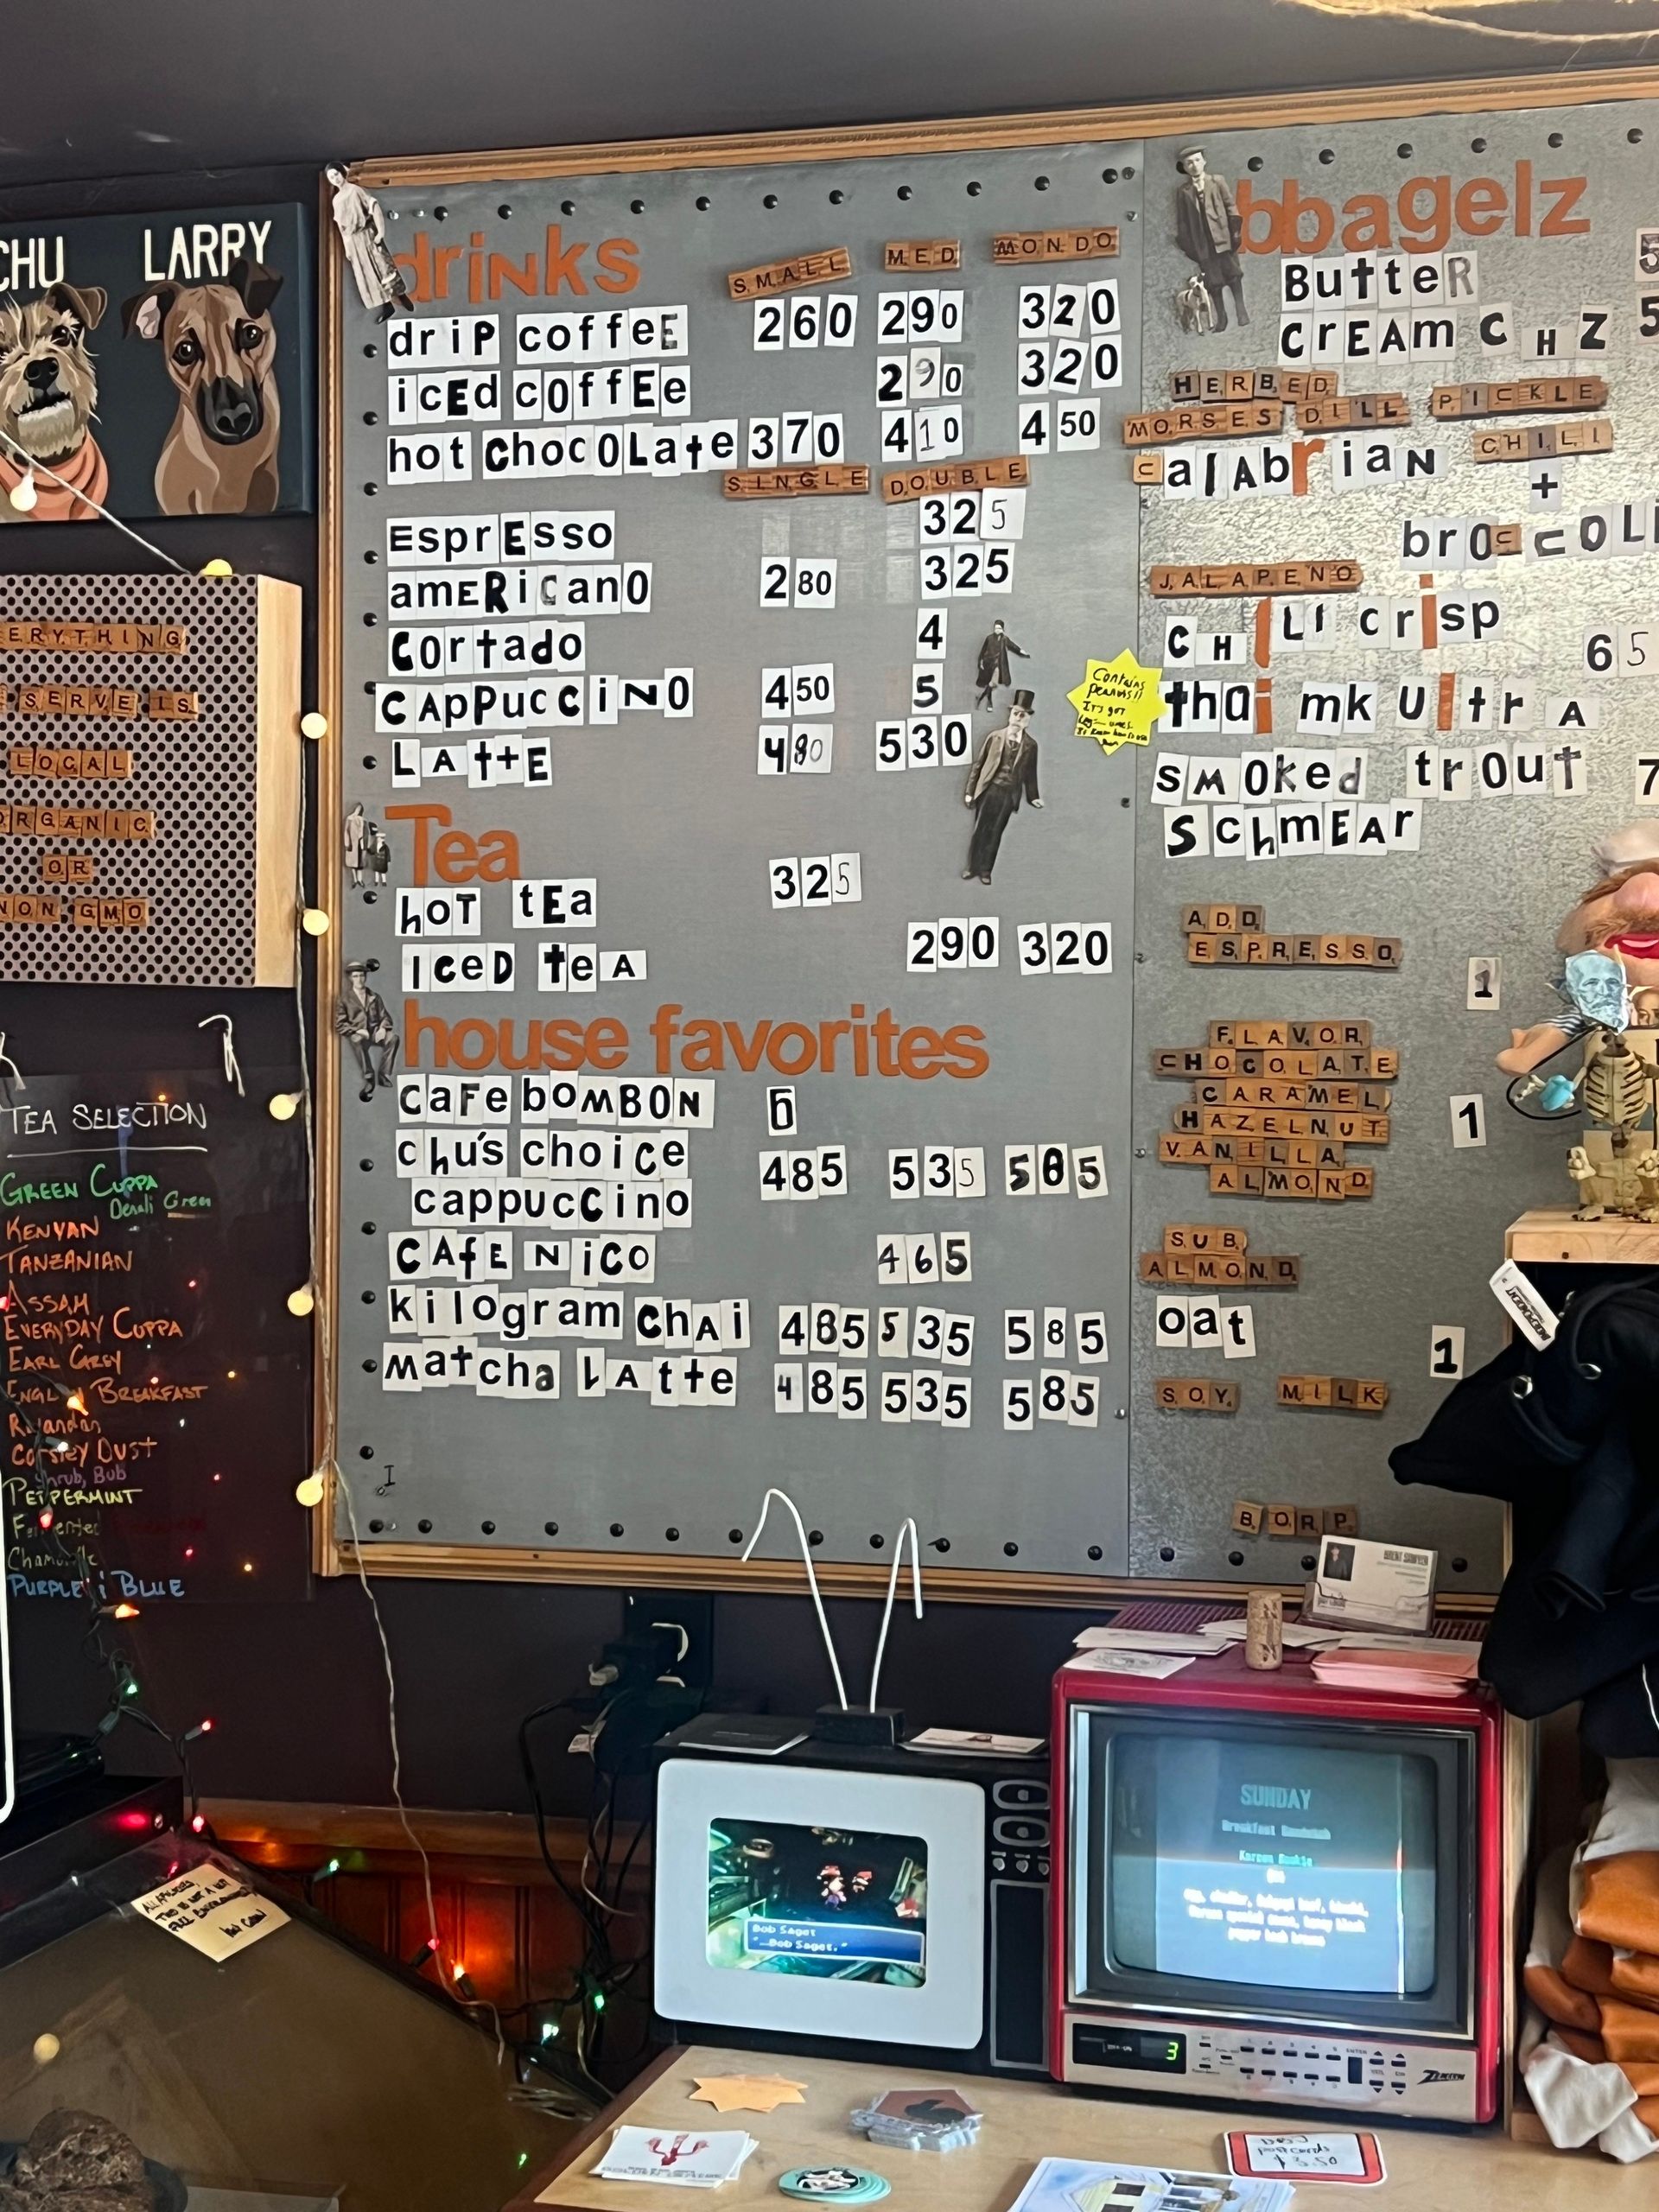 CHU LARRY
ERYTHING
SERVE IS
LOCAL
ORGANIC
OR
NON GMO
TEA SELECTION
GREEN CUPPA
Denali Green
KENYAN
TANZANIAN
ASSAM
EVERYDAY CUPPA
EARL GREY
BREAKFAST
DUST
Shrub, Bub
PEPPERMINT
Fermented
Chamomile
PURPLE i BLUE
drinks SMALL MED MONDO
drip coffeE 260 290 320
icEd cOffEe 290 320
hot chocOLate 370 410 450
SINGLE DOUBLE
EsprEsso 325
amERicanO 280 325
COrtado 4
CAppucciNO 450 5
LAttE 480 530
Tea
hoT tEa 325
IceD teA 290 320
house favorites
caFe boMBON 6
chu's choice 485 535 585
cappucCino
CAfE NiCO 465
kilogram ChAi 485 535 585
Matcha LAtte 485 535 585
bbagelz
ButteR 5
CrEAm CHZ 5
HERBED
MORSES DILL PICKLE
CalAbriaN CHILI
+
brOCCOLi
JALAPENO
CHiLI crisp 65
thai mk UltrA
sMOked trOut 7
SchmEAr
Contains
peanuts!!
It's got
ADD
ESPRESSO 1
FLAVOR
CHOCOLATE
CARAMEL
HAZELNUT 1
VANILLA
ALMOND
SUB
ALMOND
oat 1
SOY MILK
BORP
INDEPENDENT
Bob Saget
"…Bob Saget."
SUNDAY
Breakfast Sandwich
3
ZENITH
postcards
$3.50